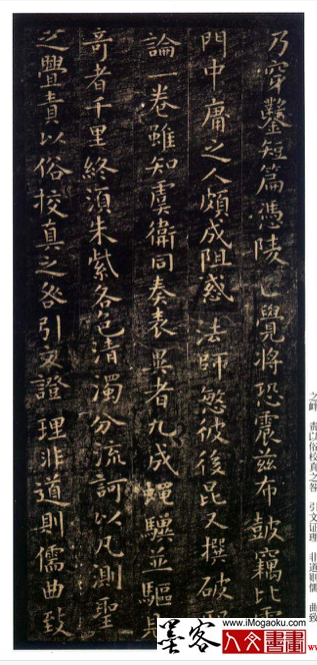 乃穿鑿短篇憑陵正覺將恐震茲布皷竊比
門中庸之人頗成阻惑法師愍彼後昆又撰破
論一卷雖知虞衛同奏表異者九成蠅驥並驅見
奇者千里終須朱紫各色清濁分流訶以凡測聖
之舋責以俗校真之咎引文證理非道則儒曲致
之衅 责以俗校真之咎 引文证理 非道则儒 曲致
墨客
www.iMogaoku.com
人文書畫